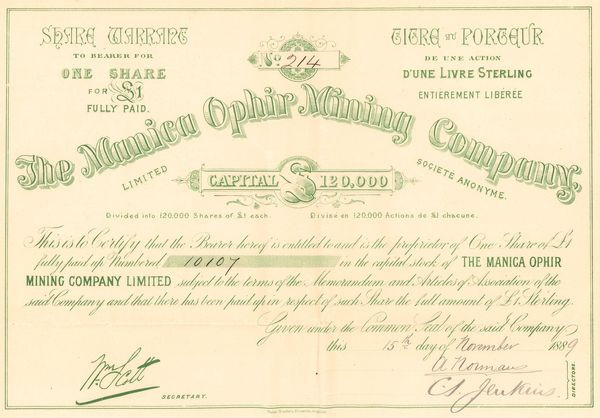 SHARE WARRANT
TO BEARER FOR
ONE SHARE
FOR £1
FULLY PAID.
No. 214
TITRE AU PORTEUR
DE UNE ACTION
D'UNE LIVRE STERLING
ENTIEREMENT LIBERÉE
The Manica Ophir Mining Company,
LIMITED
SOCIETÉ ANONYME.
CAPITAL £ 120,000
Divided into 120,000 Shares of £1 each.
Divisé en 120,000 Actions de £1 chacune.
This is to Certify that the Bearer hereof is entitled to and is the proprietor of One Share of £1
fully paid up Numbered 10107 in the capital stock of THE MANICA OPHIR
MINING COMPANY LIMITED subject to the terms of the Memorandum and Articles of Association of the
said Company and that there has been paid up in respect of such Share the full amount of £1 Sterling.
Given under the Common Seal of the said Company
this 15th day of November 1889
Wm Scott
SECRETARY.
A Norman
C.S. Jenkins
DIRECTORS.